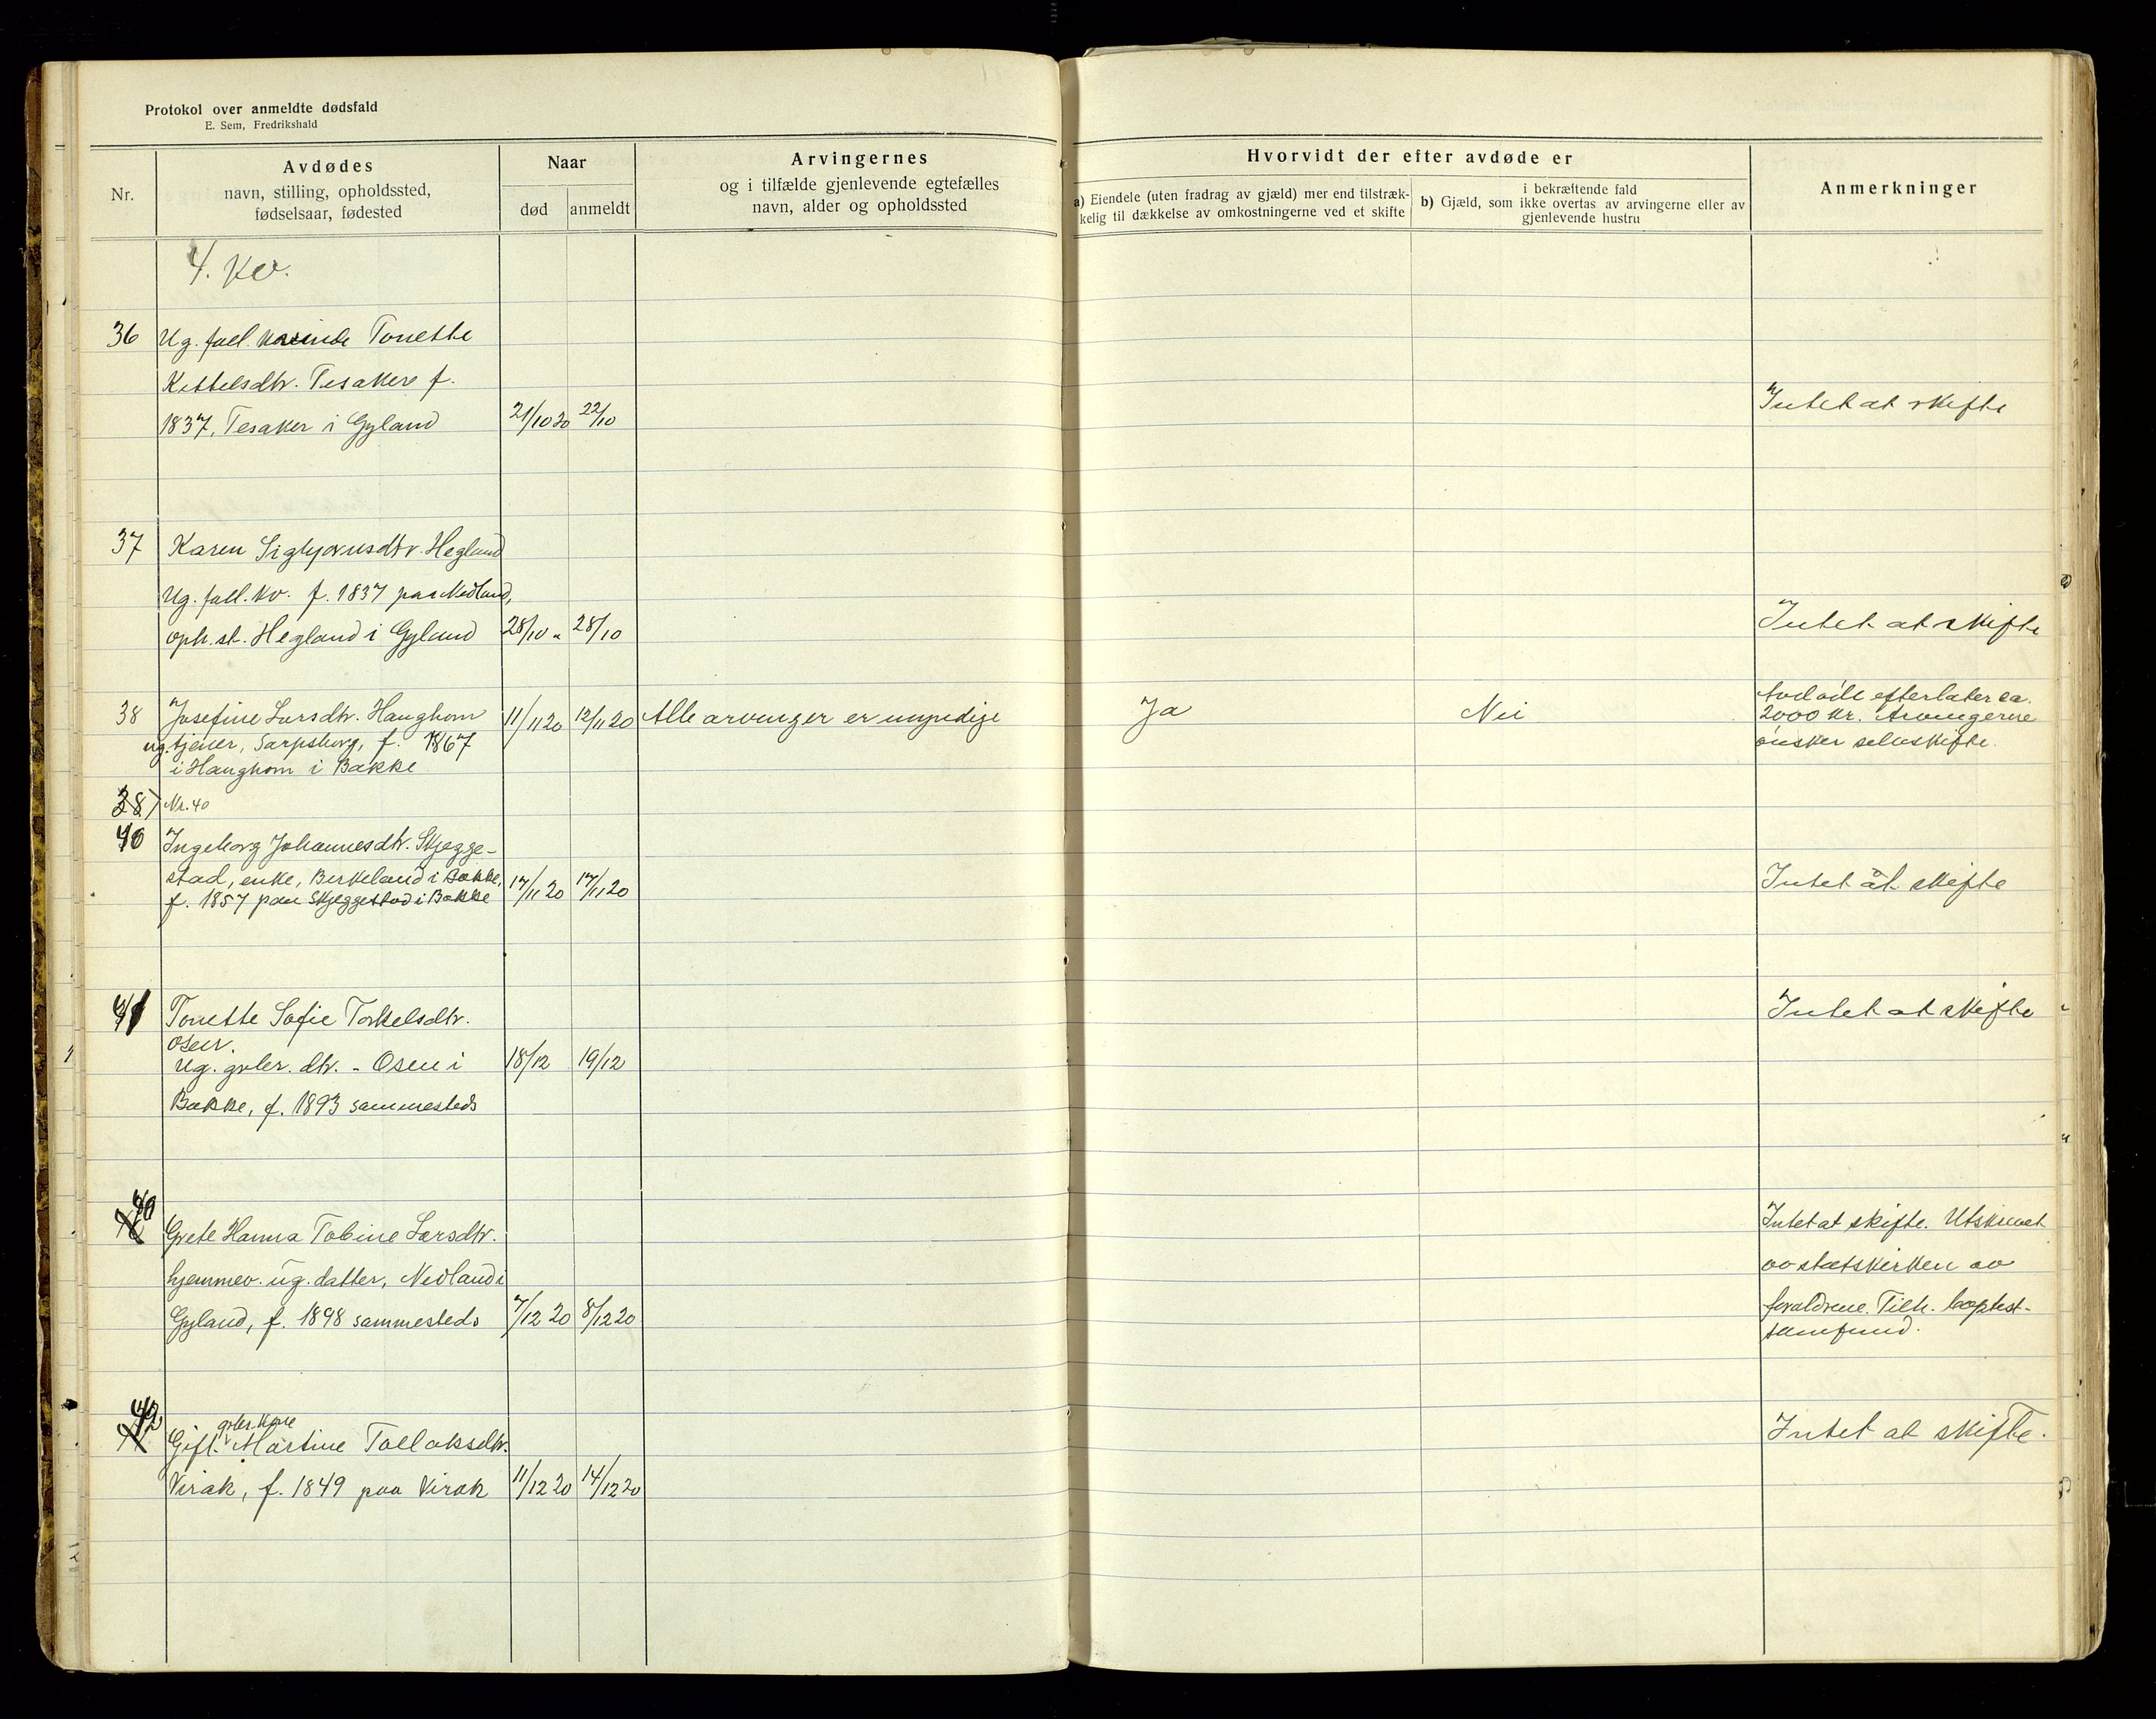 Protokol over anmeldte dødsfald
E. Sem, Fredrikshald
Nr.
Avdødes
navn, stilling, opholdssted,
fødselsaar, fødested
Naar
død
anmeldt
Arvingernes
og i tilfælde gjenlevende egtefælles
navn, alder og opholdssted
Hvorvidt der efter avdøde er
a) Eiendele (uten fradrag av gjæld) mer end tilstræk-
kelig til dækkelse av omkostningerne ved et skifte
i bekræftende fald
b) Gjæld, som ikke overtas av arvingerne eller av
gjenlevende hustru
Anmerkninger
4. Kv.
36 Ug. fatt. kvinde Tonette
Kettelsdtr. Tesaker f.
1837, Tesaker i Gyland 21/10 20 22/10 Intet at skifte
37 Karen Sigbjørnsdtr. Hegland
Ug. fatt. kv. f. 1837 paa Nedland,
oph.st. Hegland i Gyland 28/10 " 28/10 Intet at skifte
38 Josefine Larsdtr. Haughom 11/11 20 12/11 20 Alle arvinger er myndige Ja Nei Avdøde efterlater ca.
2000 kr. Arvingerne
ønsker selvskifte.
ug. tjener, Sarpsborg, f. 1867
i Haughom i Bakke
38) Nr. 40
40 Ingeborg Johannesdtr. Skjegge-
stad, enke, Birkeland i Bakke,
f. 1857 paa Skjeggestad i Bakke 17/11 20 17/11 20 Intet at skifte
41 Tonette Sofie Torkelsdtr. Intet at skifte
Osen.
Ug. grbr. dtr. - Osen i 18/12 19/12
Bakke, f. 1893 sammesteds
40
Grete Hanna Tobine Larsdtr. Intet at skifte. Utskrevet
hjemmev. ug. datter, Nedland i av statskirken av
Gyland, f. 1898 sammesteds 7/12 20 8/12 20 forældrene. Tilh. baptist-
samfund.
42
grbr. kone
Gift. Martine Tollaksdtr. Intet at skifte.
Virak, f. 1849 paa Virak 11/12 20 14/12 20